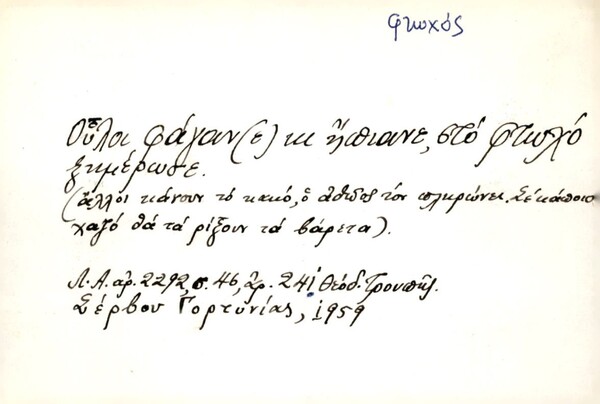 φτωχός
Οὗλοι φάγαν(ε) κι ἤπιανε, στό φτωχό
ξημέρωσε.
(ἄλλοι κάνουν τό κακό, ὁ ἀθῶος τόν πληρώνει. Σέ κάποιο
χαζό θά τά ρίξουν τά βάρετα).
Λ.Α. ἀρ. 2292, σ. 46, ἀρ. 241 Θεόδ. Τρουπῆς.
Σέρβου Γορτυνίας, 1959